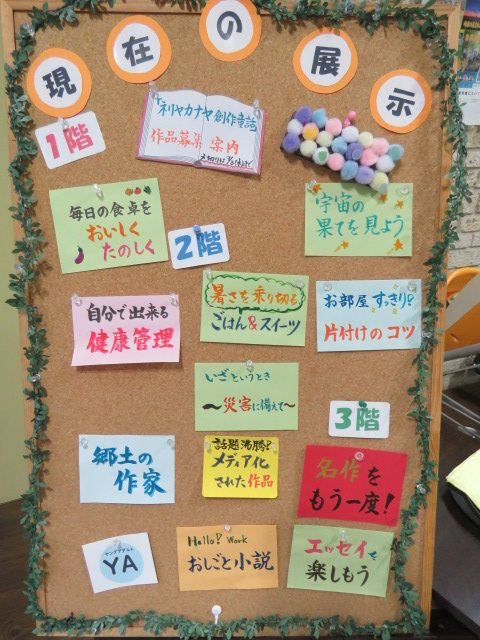 現在の展示
1階
ネリヤカナヤ創作童話
作品募集 案内
毎日の食卓を
おいしく
たのしく
宇宙の
果てを見よう
2階
自分で出来る
健康管理
暑さを乗り切る
ごはん&スイーツ
お部屋すっきり!
片付けのコツ
いざというとき
〜災害に備えて〜
3階
郷土の
作家
話題沸騰!
メディア化
された作品
名作を
もう一度!
ヤングアダルト
YA
Hello! Work
おしごと小説
エッセイを
楽しもう